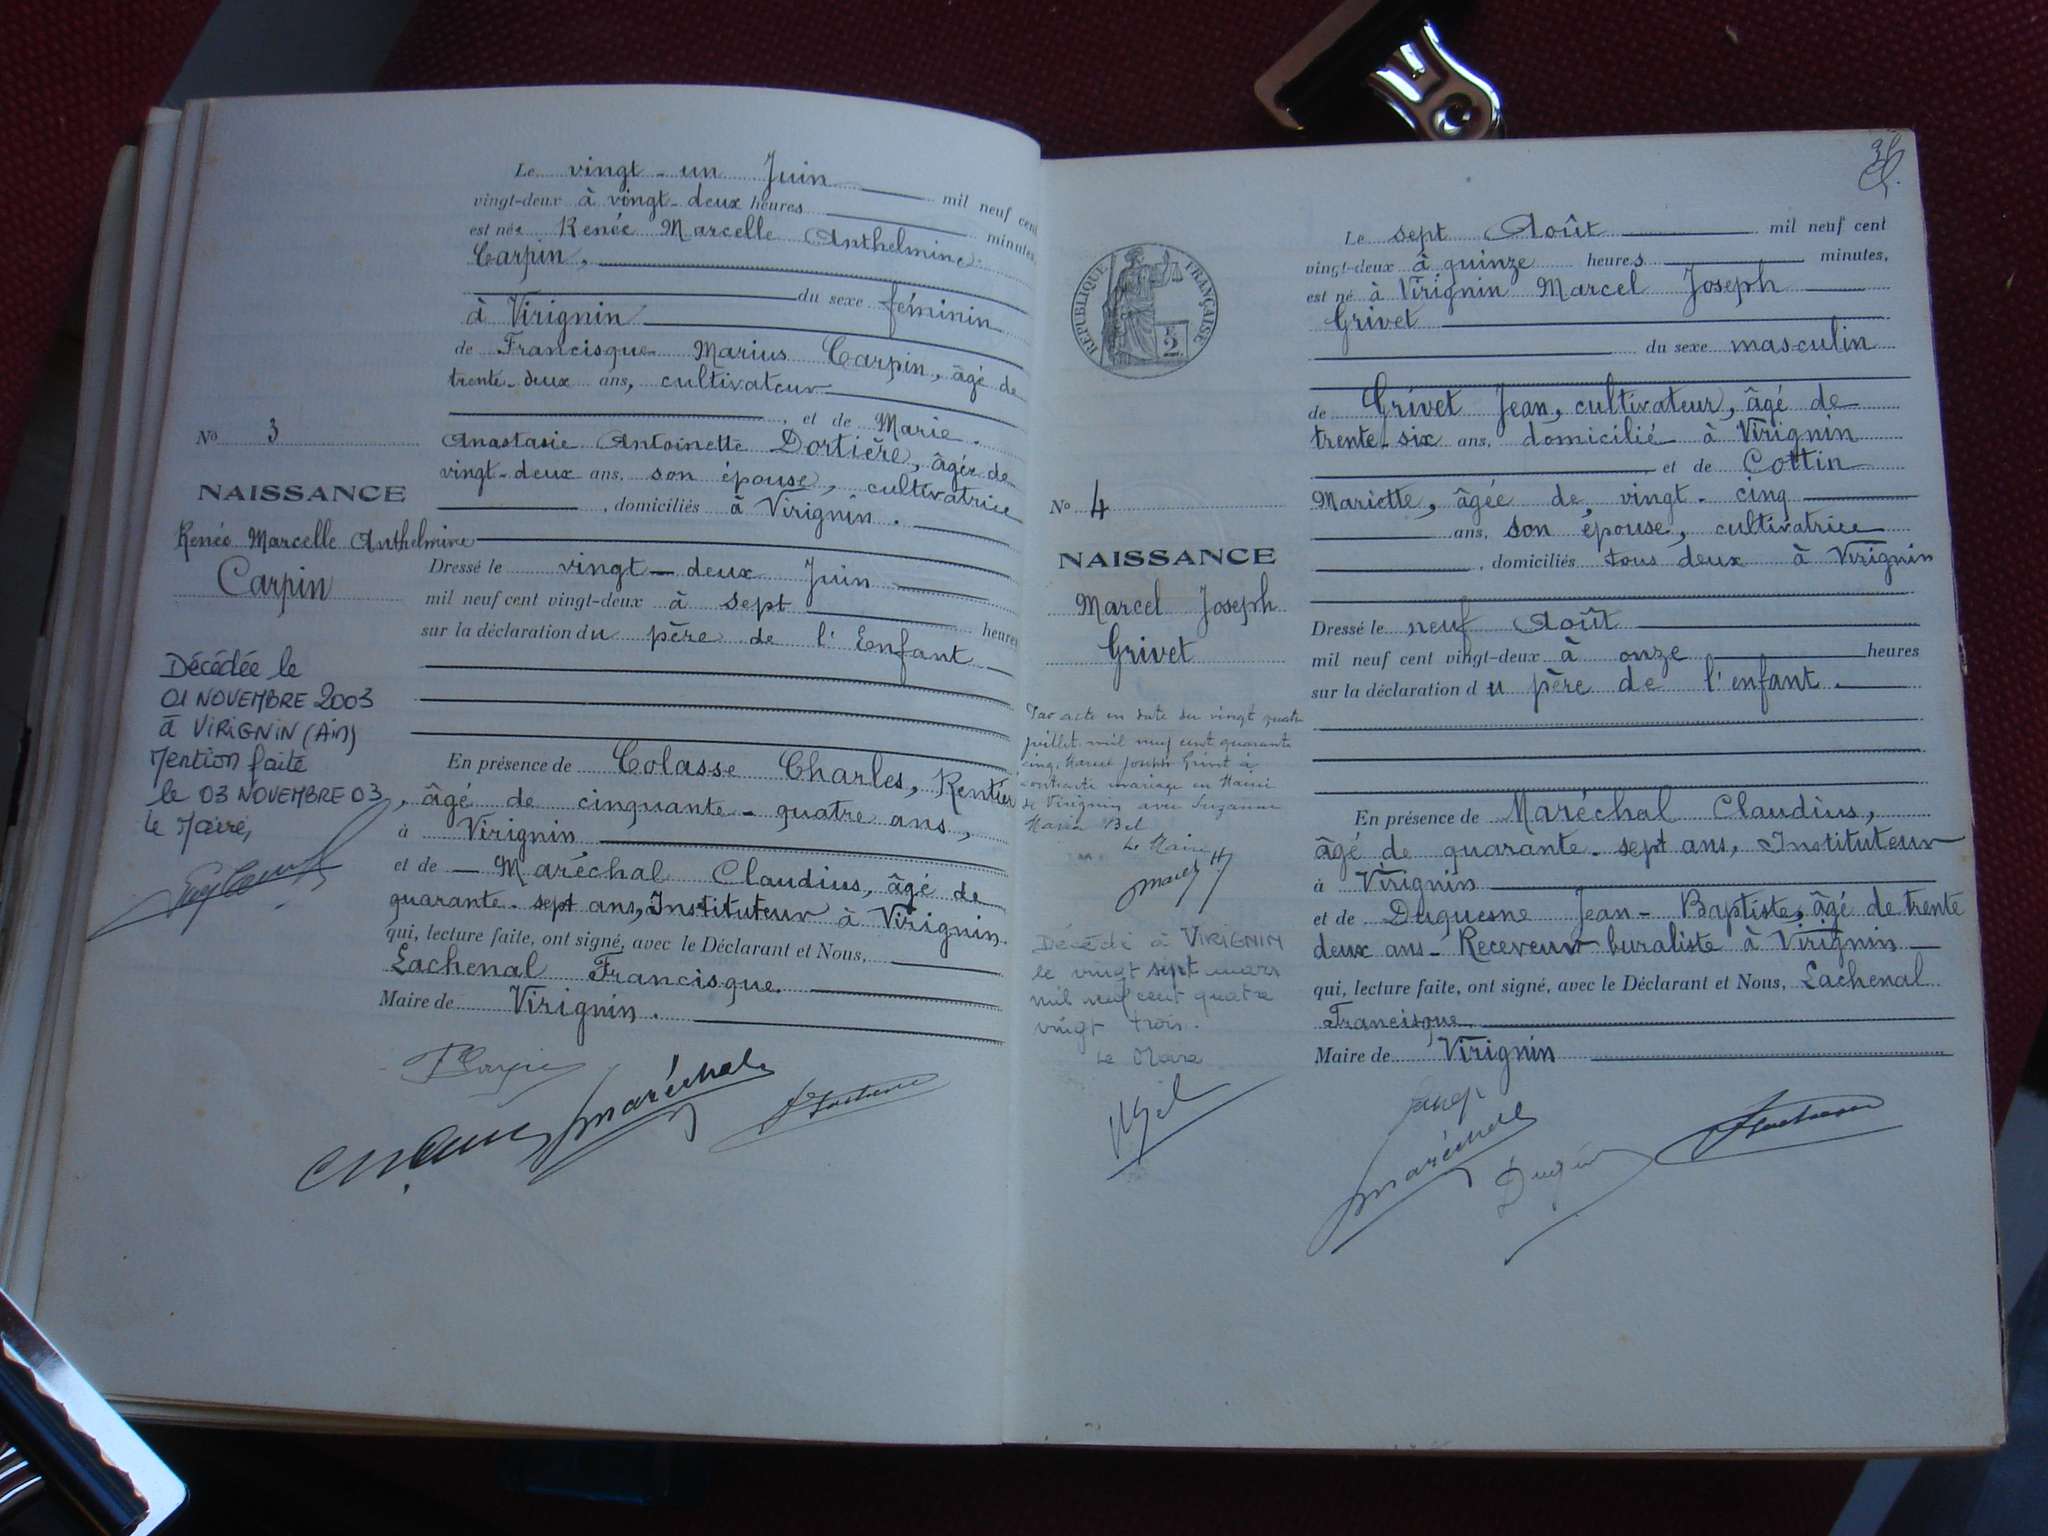 Le vingt-un Juin mil neuf cent
vingt-deux à vingt-deux heures minutes,
est née Renée Marcelle Anthelmine
Carpin,
du sexe féminin
à Virignin
de Francisque Marius Carpin, âgé de
trente-deux ans, cultivateur
, et de Marie
Anastasie Antoinette Dortière, âgée de
vingt-deux ans, son épouse, cultivatrice
, domiciliés à Virignin.
Dressé le vingt-deux Juin
mil neuf cent vingt-deux à sept heures
sur la déclaration du père de l'Enfant
En présence de Colasse Charles, Rentier
, âgé de cinquante-quatre ans,
à Virignin
et de Maréchal Claudius, âgé de
quarante-sept ans, Instituteur à Virignin.
qui, lecture faite, ont signé, avec le Déclarant et Nous,
Lachenal Francisque
Maire de Virignin.
Maréchal
No 3
NAISSANCE
Renée Marcelle Anthelmine
Carpin
Décédée le
01 NOVEMBRE 2003
à VIRIGNIN (Ain)
Mention faite
le 03 NOVEMBRE 03
Le Maire,
RÉPUBLIQUE FRANÇAISE
2
No 4
NAISSANCE
Marcel Joseph
Grivet
Par acte en date du vingt quatre
juillet mil neuf cent quarante
cinq, Marcel Joseph Grivet à
contracté mariage en Mairie
de Virignin avec Suzanne
Maria Bel
Le Maire
Décédé à VIRIGNIN
le vingt sept mars
mil neuf cent quatre
vingt trois.
Le Maire
Le sept Août mil neuf cent
vingt-deux à quinze heures minutes,
est né à Virignin Marcel Joseph
Grivet
du sexe masculin
de Grivet Jean, cultivateur, âgé de
trente-six ans, domicilié à Virignin
et de Cottin
Mariette, âgée de vingt-cinq
ans, son épouse, cultivatrice
, domiciliés tous deux à Virignin
Dressé le neuf Août
mil neuf cent vingt-deux à onze heures
sur la déclaration du père de l'enfant.
En présence de Maréchal Claudius,
âgé de quarante-sept ans, Instituteur
à Virignin
et de Duquesne Jean-Baptiste, âgé de trente
deux ans - Receveur buraliste à Virignin
qui, lecture faite, ont signé, avec le Déclarant et Nous, Lachenal
Francisque
Maire de Virignin
Maréchal